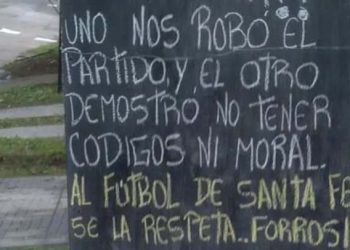 UNO NOS ROBÓ EL
PARTIDO, Y, EL OTRO
DEMOSTRO NO TENER
CODIGOS NI MORAL.
AL FÚTBOL DE SANTA FE
SE LA RESPETA.. FORROS!